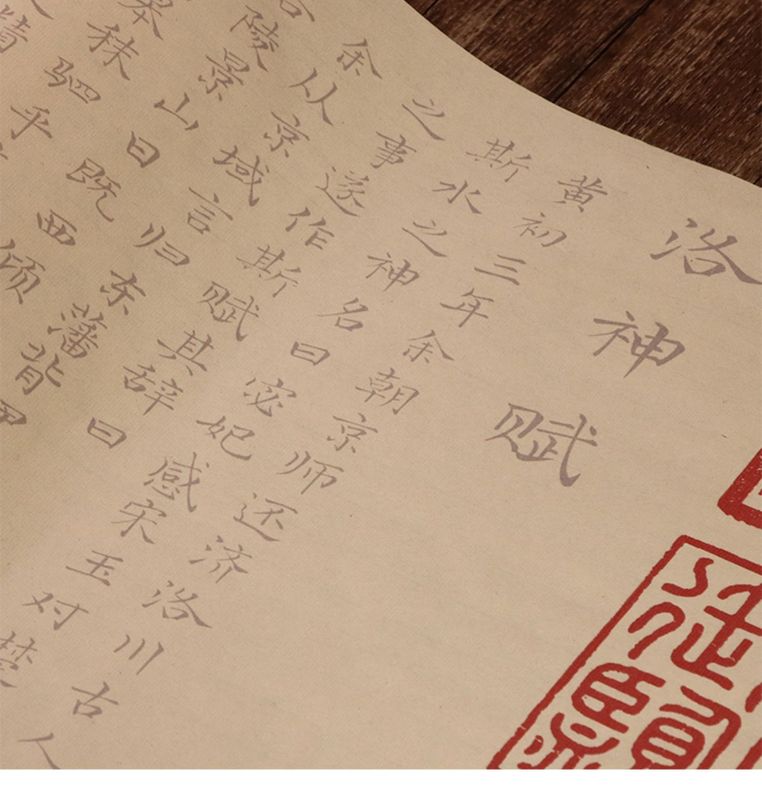 洛神赋
黄初三年余朝京师还济洛川古人
斯水之神名曰宓妃感宋玉对楚
之事遂作斯赋其辞曰
余从京域言归东藩背
陵景山日既西倾
皋秣驷乎